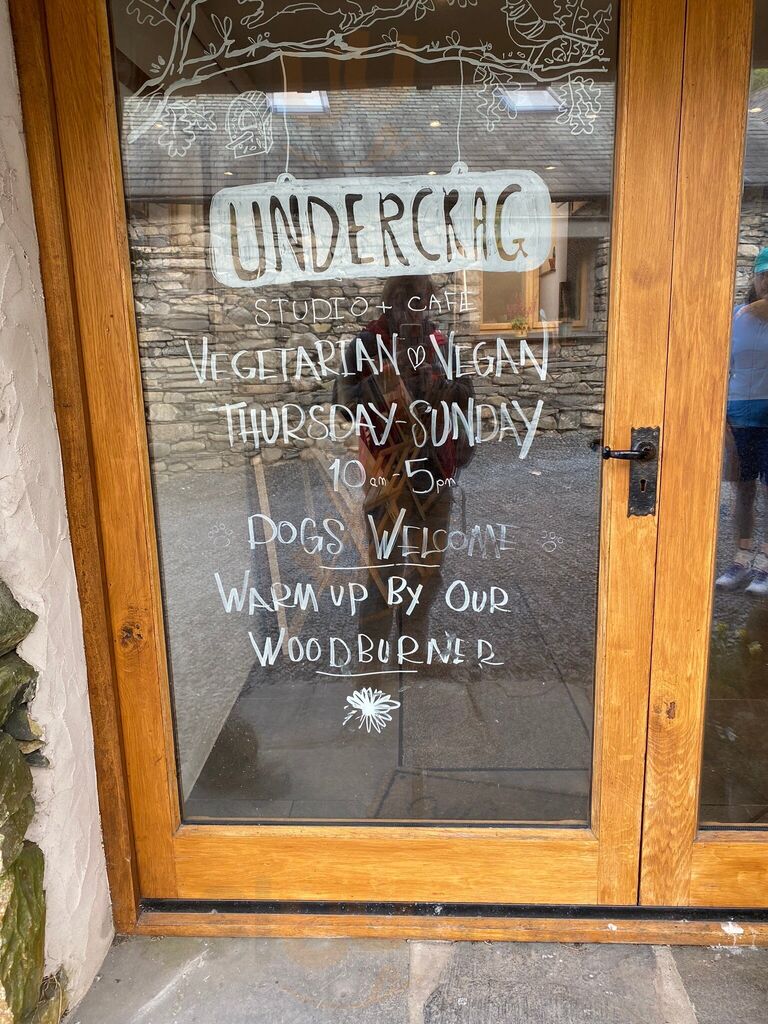 UNDERCRAG
STUDIO + CAFÉ
VEGETARIAN ♡ VEGAN
THURSDAY-SUNDAY
10am-5pm
DOGS WELCOME
WARM UP BY OUR
WOODBURNER